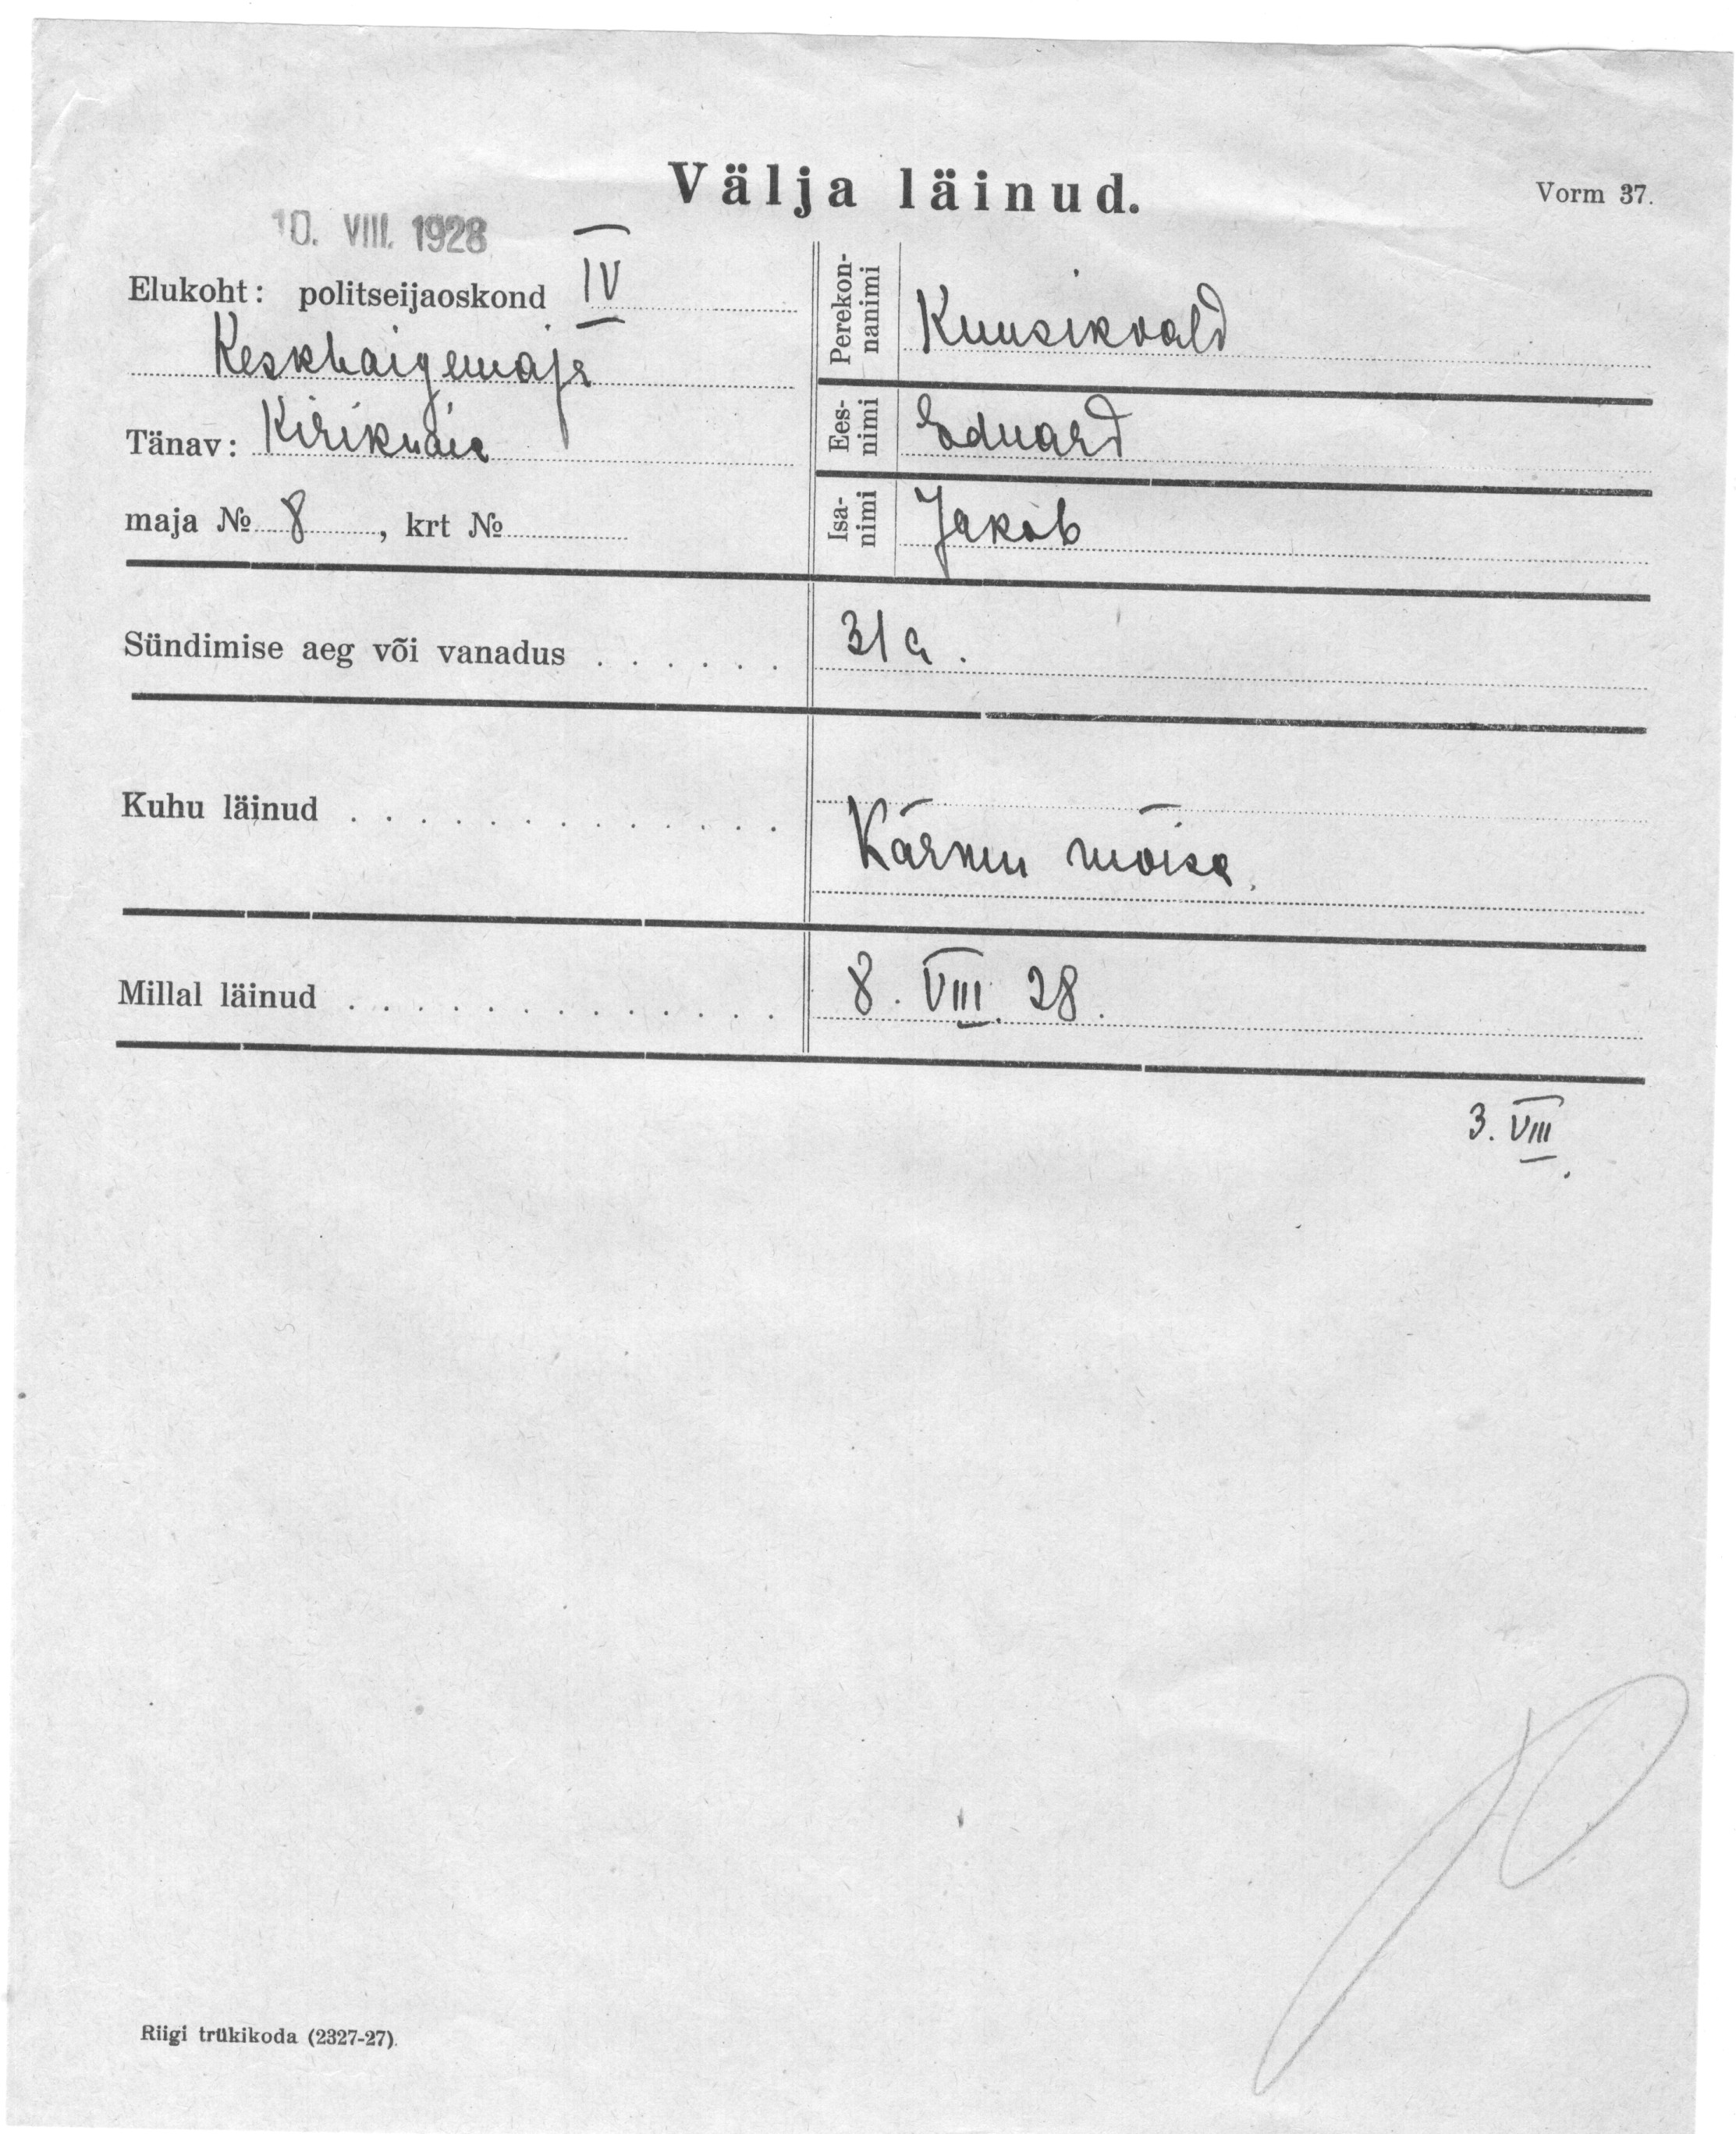 Välja läinud.
Vorm 37.
10. VIII. 1928
Elukoht: politseijaoskond IV
Keskhaigemaja
Tänav:
maja № 8, krt №
Perekon-
nanimi
Kuusikvald
Ees-
nimi
Eduard
Isa-
nimi
Jakob
Sündimise aeg või vanadus . . . . . . 31 a.
Kuhu läinud . . . . . . . . . . . . . Kärmu mõisa.
Millal läinud . . . . . . . . . . . . . 8. VIII. 28.
3. VIII.
Riigi trükikoda (2327-27).